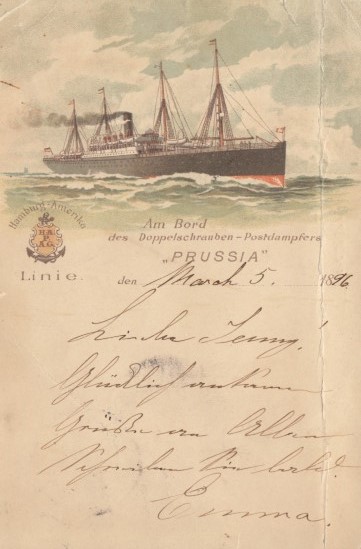 Hamburg-Amerika
H.A.
P.
A.G.
Linie.
Am Bord
des Doppelschrauben-Postdampfers
„PRUSSIA"
den March 5. 1896
Liebe Jenny!
Glücklich ankamen
Grüße an Allen
Schreiben Sie bald.
Emma.